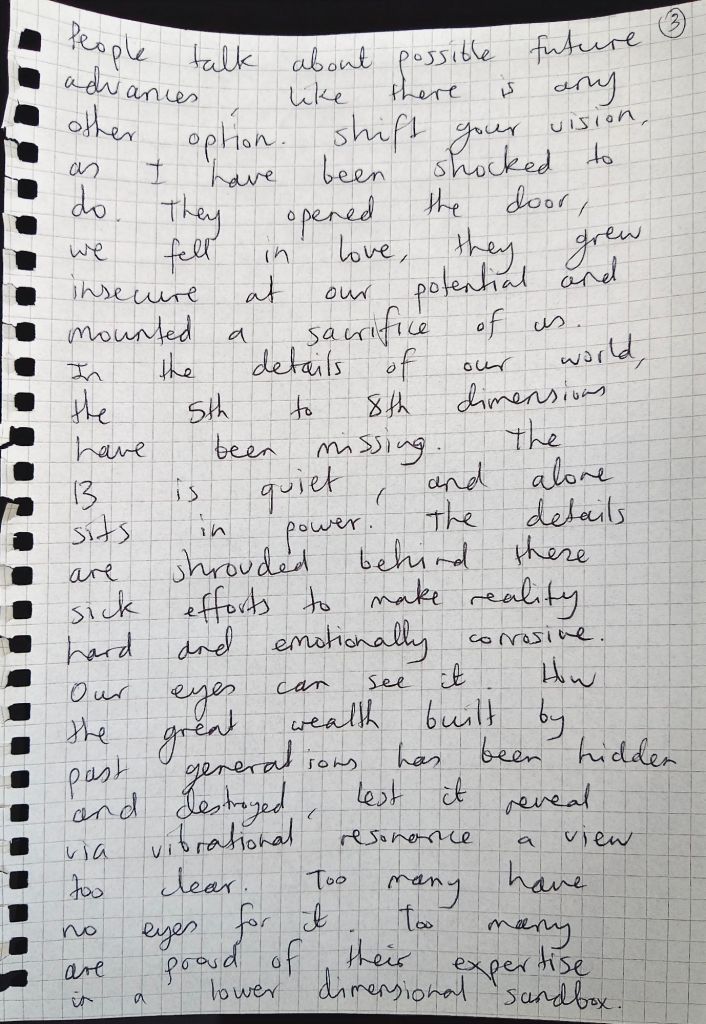 3
People talk about possible future
advances, like there is any
other option. Shift your vision,
as I have been shocked to
do. They opened the door,
we fell in love, they grew
insecure at our potential and
mounted a sacrifice of us.
In the details of our world,
the 5th to 8th dimensions
have been missing. The
13 is quiet, and alone
sits in power. The details
are shrouded behind these
sick efforts to make reality
hard and emotionally corrosive.
Our eyes can see it. How
the great wealth built by
past generations has been hidden
and destroyed, lest it reveal
via vibrational resonance a view
too clear. Too many have
no eyes for it. Too many
are proud of their expertise
in a lower dimensional sandbox.